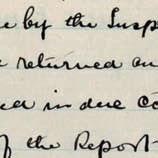 e by the Susp
e returned an
ed in due Co
of the Report